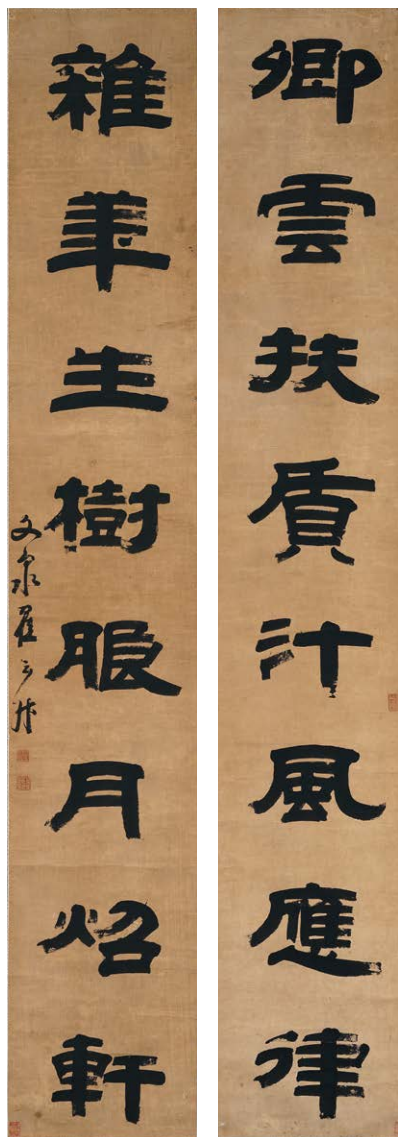 卿雲扶質汁風應律
雜華生樹朖月炤軒
文泉翟云升